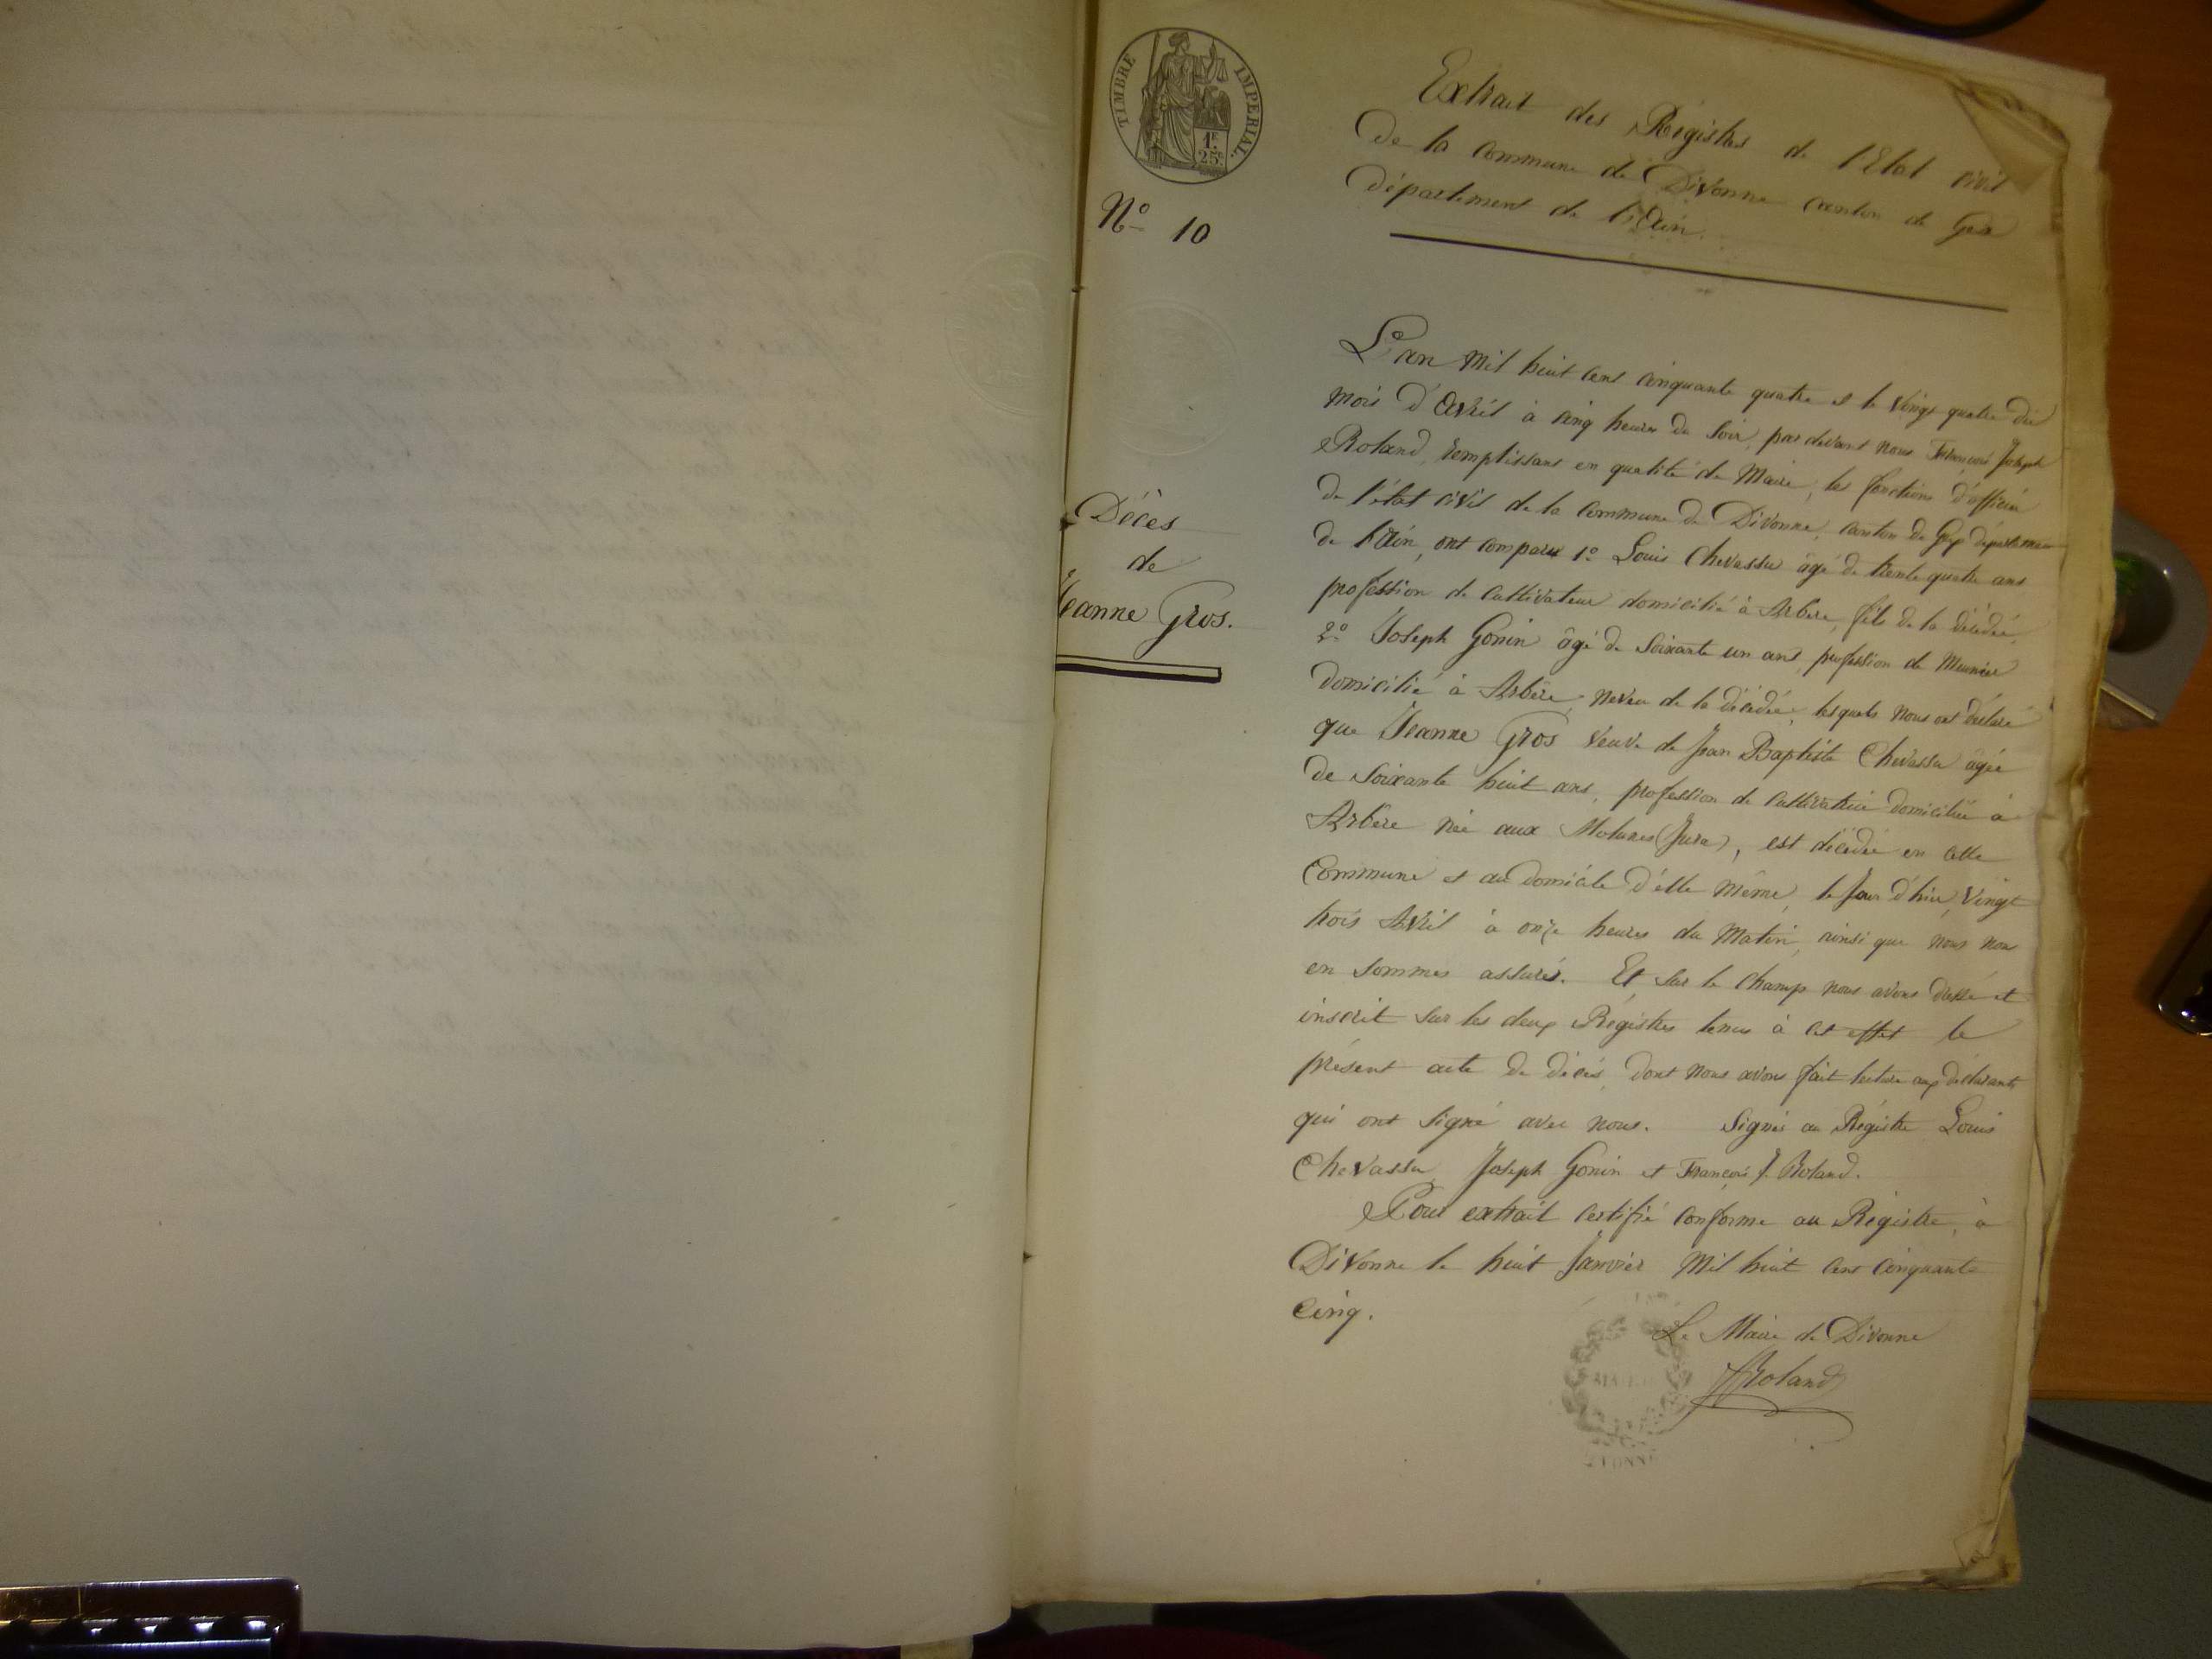 TIMBRE IMPERIAL.
1F.
25c.
N° 10
Extrait des Régistres de l'Etat civil
De la commune de Divonne canton de Gex
Département de l'Ain.
Décès
de
Jeanne Gros.
L'an mil huit cent cinquante quatre et le vingt quatre du
mois d'Avril à cinq heures du soir, par devant nous François Joseph
Roland, remplissant en qualité de Maire, les fonctions d'officier
de l'état civil de la commune de Divonne, canton de Gex département
de l'Ain, ont comparu 1° Louis Chevassu âgé de trente quatre ans
profession de cultivateur domicilié à Arbère, fils de la décédée,
2° Joseph Gonin âgé de soixante un ans, profession de Meunier
domicilié à Arbère, neveu de la décédée, lesquels nous ont déclaré
que Jeanne Gros veuve de Jean Baptiste Chevassu âgée
de soixante huit ans, profession de cultivatrice domiciliée à
Arbère née aux Molunes (Jura), est décédée en cette
Commune et au domicile d'elle même, le jour d'hier, vingt
trois Avril à onze heures du matin, ainsi que nous nous
en sommes assurés. Et sur le champ nous avons dressé et
inscrit sur les deux Régistres tenus à cet effet le
présent acte de décès, dont nous avons fait lecture aux déclarants
qui ont signé avec nous. Signés au Régistre Louis
Chevassu, Joseph Gonin et François J. Roland.
Pour extrait certifié conforme au Régistre, à
Divonne le huit Janvier mil huit cent cinquante
cinq.
Le Maire de Divonne
FJRoland